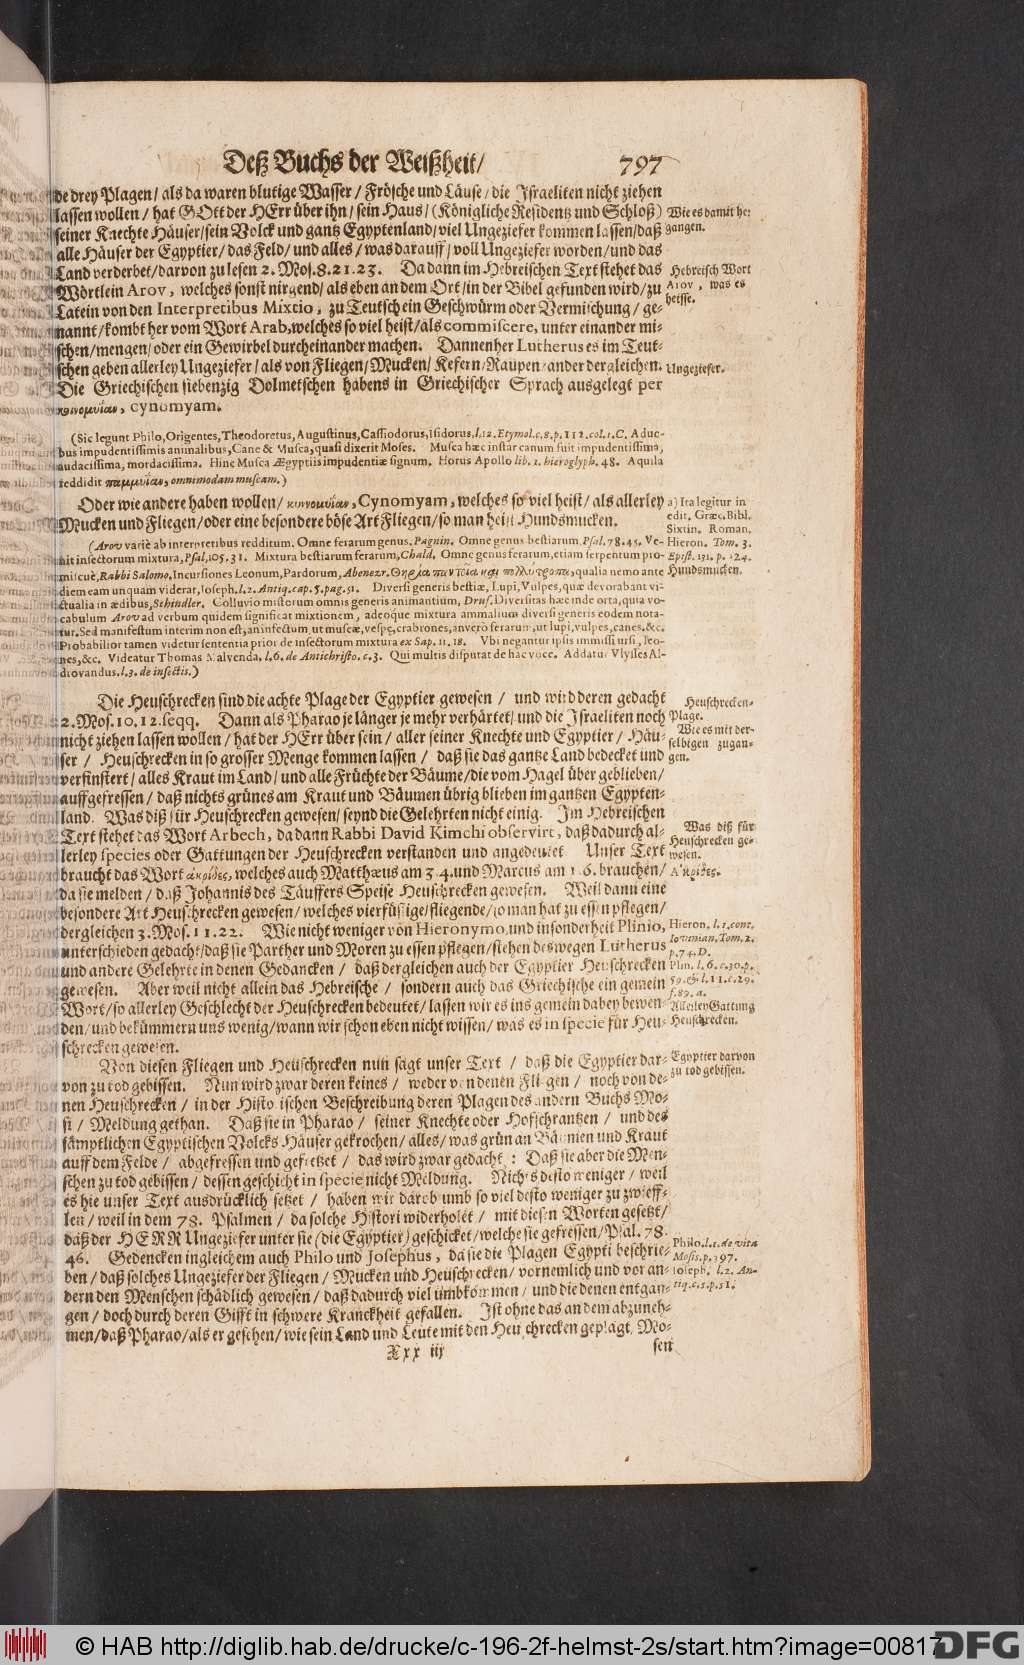 Deß Buchs der Weißheit/ 797
de drey Plagen/ als da waren blutige Wasser/ Frösche und Läuse/ die Israeliten nicht ziehen
lassen wollen/ hat GOtt der HErr über ihn/ sein Haus/ (Königliche Residentz und Schloß)
seiner Knechte Häuser/ sein Volck und gantz Egyptenland/ viel Ungeziefer kommen lassen/ daß
alle Häuser der Egyptier/ das Feld/ und alles/ was darauff/ voll Ungeziefer worden/ und das
Land verderbet/ darvon zu lesen 2. Mos. 8. 21. 23. Da dann im Hebreischen Text stehet das
Wörtlein Arov, welches sonst nirgend/ als eben an dem Ort/ in der Bibel gefunden wird/ zu
Latein von den Interpretibus Mixtio, zu Teutsch ein Geschwürm oder Vermischung/ ge-
nannt/ kombt her vom Wort Arab, welches so viel heist/ als commiscere, unter einander mi-
schen/ mengen/ oder ein Gewirbel durcheinander machen. Dannenher Lutherus es im Teut-
schen geben allerley Ungeziefer/ als von Fliegen/ Mucken/ Kefern/ Raupen/ ander dergleichen.
Die Griechischen siebenzig Dolmetschen habens in Griechischer Sprach ausgelegt per
κυνομυΐαν, cynomyam.
(Sic legunt Philo, Origentes, Theodoretus, Augustinus, Cassiodorus, Isidorus, l. 12. Etymol. c. 8. p. 112. col. 1. C. Aduc-
bus impudentissimis animalibus, Cane & Musca, quasi dixerit Moses. Musca hæc instar canum fuit impudentissima,
audacissima, mordacissima. Hinc Musca Ægyptiis impudentiæ signum. Horus Apollo lib. 1. hieroglyph. 48. Aquila
reddidit παμμυΐαν, omnimodam muscam.)
Oder wie andere haben wollen/ κυνομυΐαν, Cynomyam, welches so viel heist/ als allerley
Mucken und Fliegen/ oder eine besondere böse Art Fliegen/ so man heist Hundsmucken.
(Arov variè ab interpretibus redditum. Omne ferarum genus. Pagnin. Omne genus bestiarum. Psal. 78. 45. Ve-
nit insectorum mixtura, Psal. 105. 31. Mixtura bestiarum ferarum, Chald. Omne genus ferarum, etiam serpentum pro-
miscuè, Rabbi Salomo. Incursiones Leonum, Pardorum, Abenezr. Θηρία παντοῖα καὶ πολύτροπα, qualia nemo ante
diem eam unquam viderat, Joseph. l. 2. Antiq. cap. 5. pag. 51. Diversi generis bestiæ, Lupi, Vulpes, quæ devorabant vi-
ctualia in ædibus, Schindler. Colluvio misterum omnis generis animantium, Drus. Diversitas hæc inde orta, quia vo-
cabulum Arov ad verbum quidem significat mixtionem, adeoque mixtura animalium diversi generis eodem nota-
tur. Sed manifestum interim non est, an insectum, ut muscæ, vespę, crabrones, an verò ferarum, ut lupi, vulpes, canes. &c.
Probabilior tamen videtur sententia prior de insectorum mixtura ex Sap. 11. 18. Ubi negantur ipsis immissi ursi, leo-
nes, &c. Videatur Thomas Malvenda. l. 6. de Antichristo. c. 3. Qui multis disputat de hac voce. Addatur Ulysses Al-
drovandus. l. 3. de insectis.)
Die Heuschrecken sind die achte Plage der Egyptier gewesen/ und wird deren gedacht
2. Mos. 10. 12. seqq. Dann als Pharao je länger je mehr verhärtet/ und die Israeliten noch
nicht ziehen lassen wollen/ hat der HErr über sein/ aller seiner Knechte und Egyptier/ Häu-
ser/ Heuschrecken in so grosser Menge kommen lassen/ daß sie das gantze Land bedecket und
verfinstert/ alles Kraut im Land/ und alle Früchte der Bäume/ die vom Hagel über geblieben/
auffgefressen/ daß nichts grünes am Kraut und Bäumen übrig blieben im gantzen Egypten-
land. Was diß für Heuschrecken gewesen/ seynd die Gelehrten nicht einig. Im Hebreischen
Text stehet das Wort Arbech, da dann Rabbi David Kimchi observirt, daß dadurch al-
lerley species oder Gattungen der Heuschrecken verstanden und angedeutet Unser Text
braucht das Wort ἀκρίδες, welches auch Matthæus am 3. 4. und Marcus am 1. 6. brauchen/
da sie melden/ daß Johannis des Täuffers Speise Heuschrecken gewesen. Weil dann eine
besondere Art Heuschrecken gewesen/ welches vierfüssige/ fliegende/ so man hat zu essen pflegen/
dergleichen 3. Mos. 11. 22. Wie nicht weniger von Hieronymo, und insonderheit Plinio,
unterschieden gedacht/ daß sie Parther und Moren zu essen pflegen/ stehen deswegen Lutherus
und andere Gelehrte in denen Gedancken/ daß dergleichen auch der Egyptier Heuschrecken
gewesen. Aber weil nicht allein das Hebreische/ sondern auch das Griechische ein gemein
Wort/ so allerley Geschlecht der Heuschrecken bedeutet/ lassen wir es ins gemein dabey bewen-
den/ und bekümmern uns wenig/ wann wir schon eben nicht wissen/ was es in specie für Heu-
schrecken gewesen.
Von diesen Fliegen und Heuschrecken nun sagt unser Text/ daß die Egyptier dar-
von zu tod gebissen. Nun wird zwar deren keines/ weder von denen Fliegen/ noch von de-
nen Heuschrecken/ in der Historischen Beschreibung deren Plagen des andern Buchs Mo-
si/ Meldung gethan. Daß sie in Pharao/ seiner Knechte oder Hofschrantzen/ und des
sämptlichen Egyptischen Volcks Häuser gekrochen/ alles/ was grün an Bäumen und Kraut
auff dem Felde/ abgefressen und gefretzet/ das wird zwar gedacht: Daß sie aber die Men-
schen zu tod gebissen/ dessen geschicht in specie nicht Meldung. Nichts desto weniger/ weil
es hie unser Text ausdrücklich setzet/ haben wir darob umb so viel desto weniger zu zwieff-
len/ weil in dem 78. Psalmen/ da solche Histori widerholet/ mit diesen Worten gesetzt/
daß der HERR Ungeziefer unter sie (die Egyptier) geschicket/ welche sie gefressen/ Psal. 78.
46. Gedencken ingleichem auch Philo und Josephus, da sie die Plagen Egypti beschrie-
ben/ daß solches Ungeziefer der Fliegen/ Mucken und Heuschrecken/ vornemlich und vor an-
dern den Menschen schädlich gewesen/ daß dadurch viel umbkommen/ und die denen entgan-
gen/ doch durch deren Gifft in schwere Kranckheit gefallen. Ist ohne das an dem abzuneh-
men/ daß Pharao/ als er gesehen/ wie sein Land und Leute mit den Heuschrecken geplagt/ Mo-
Xxx iij sen
Wie es damit her-
gangen.
Hebreisch Wort
Arov, was es
heisse.
Ungeziefer.
a) Ita legitur in
edit. Græc. Bibl.
Sixtin. Roman.
Hieron. Tom. 3.
Epist. 131. p. 124.
Hundsmucken.
Heuschrecken-
Plage.
Wie es mit der-
selbigen zugan-
gen.
Was diß für
Heuschrecken ge-
wesen.
Ἀκρίδες.
Hieron. l. 1. cont.
Iovinian. Tom. 2.
p. 74. D.
Plin. l. 6. c. 30. p.
59. & l. 11. c. 29.
f. 89. a.
Allerley Gattung
Heuschrecken.
Egyptier darvon
zu tod gebissen.
Philo. l. 1. de vitâ
Mosis. p. 397.
Ioseph. l. 2. An-
tiq. c. 5. p. 51.
© HAB http://diglib.hab.de/drucke/c-196-2f-helmst-2s/start.htm?image=00817
DFG